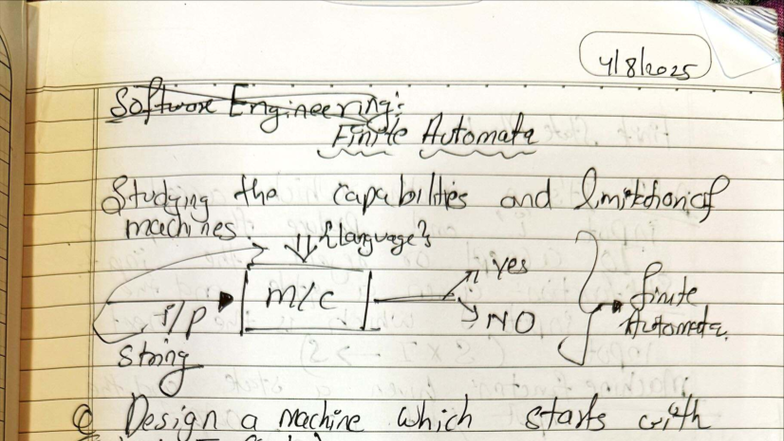 4/8/2025
Software Engineering:
Finite Automata
Studying the capabilities and limitation of
machines.
{language}
i/p
string
m/c
Yes
NO
finite
Automata.
Q Design a machine which starts with